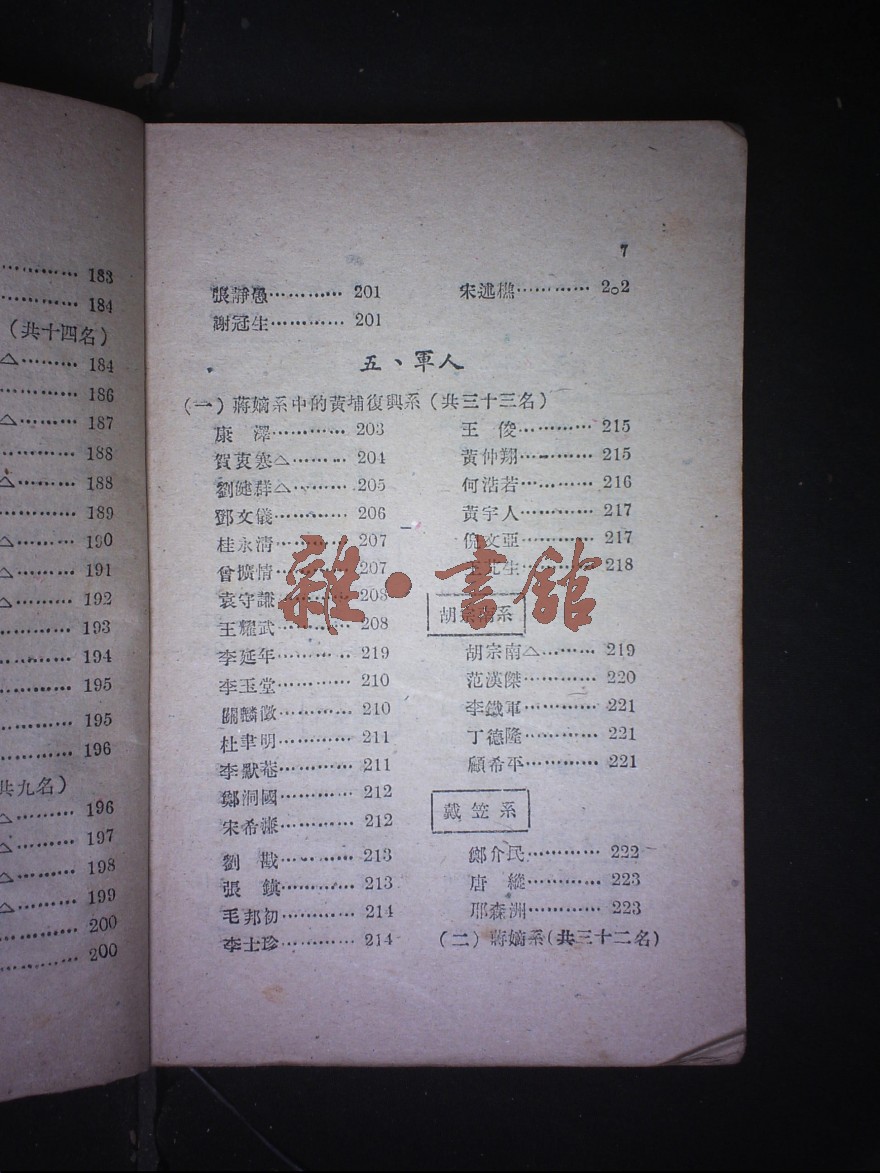 183
184
(共十四名)
△⋯⋯⋯ 184
186
△⋯⋯⋯ 187
188
△⋯⋯⋯ 188
189
△⋯⋯⋯ 190
△⋯⋯⋯ 191
△⋯⋯⋯ 192
193
194
195
195
196
共九名)
△⋯⋯⋯ 196
△⋯⋯⋯ 197
△⋯⋯⋯ 198
△⋯⋯⋯ 199
200
200
7
張靜愚⋯⋯⋯⋯ 201
宋述樵⋯⋯⋯⋯ 2o2
謝冠生⋯⋯⋯⋯ 201
五、軍人
(一)蔣嫡系中的黃埔復興系(共三十三名)
康 澤⋯⋯⋯⋯ 203
賀衷寒△⋯⋯⋯ 204
劉健群△⋯⋯⋯ 205
鄧文儀⋯⋯⋯⋯ 206
桂永淸⋯⋯⋯⋯ 207
曾擴情⋯⋯⋯⋯ 207
袁守謙⋯⋯⋯⋯ 208
王耀武⋯⋯⋯⋯ 208
李延年⋯⋯⋯⋯ 219
李玉堂⋯⋯⋯⋯ 210
關麟徵⋯⋯⋯⋯ 210
杜聿明⋯⋯⋯⋯ 211
李默菴⋯⋯⋯⋯ 211
鄭洞國⋯⋯⋯⋯ 212
宋希濂⋯⋯⋯⋯ 212
劉 戡⋯⋯⋯⋯ 213
張 鎮⋯⋯⋯⋯ 213
毛邦初⋯⋯⋯⋯ 214
李士珍⋯⋯⋯⋯ 214
王 俊⋯⋯⋯⋯ 215
黃仲翔⋯⋯⋯⋯ 215
何浩若⋯⋯⋯⋯ 216
黃宇人⋯⋯⋯⋯ 217
倪文亞⋯⋯⋯⋯ 217
王其生⋯⋯⋯⋯ 218
胡宗南系
胡宗南△⋯⋯⋯ 219
范漢傑⋯⋯⋯⋯ 220
李鐵軍⋯⋯⋯⋯ 221
丁德隆⋯⋯⋯⋯ 221
顧希平⋯⋯⋯⋯ 221
戴笠系
鄭介民⋯⋯⋯⋯ 222
唐 縱⋯⋯⋯⋯ 223
邢森洲⋯⋯⋯⋯ 223
(二)蔣嫡系(共三十二名)
雜·書館